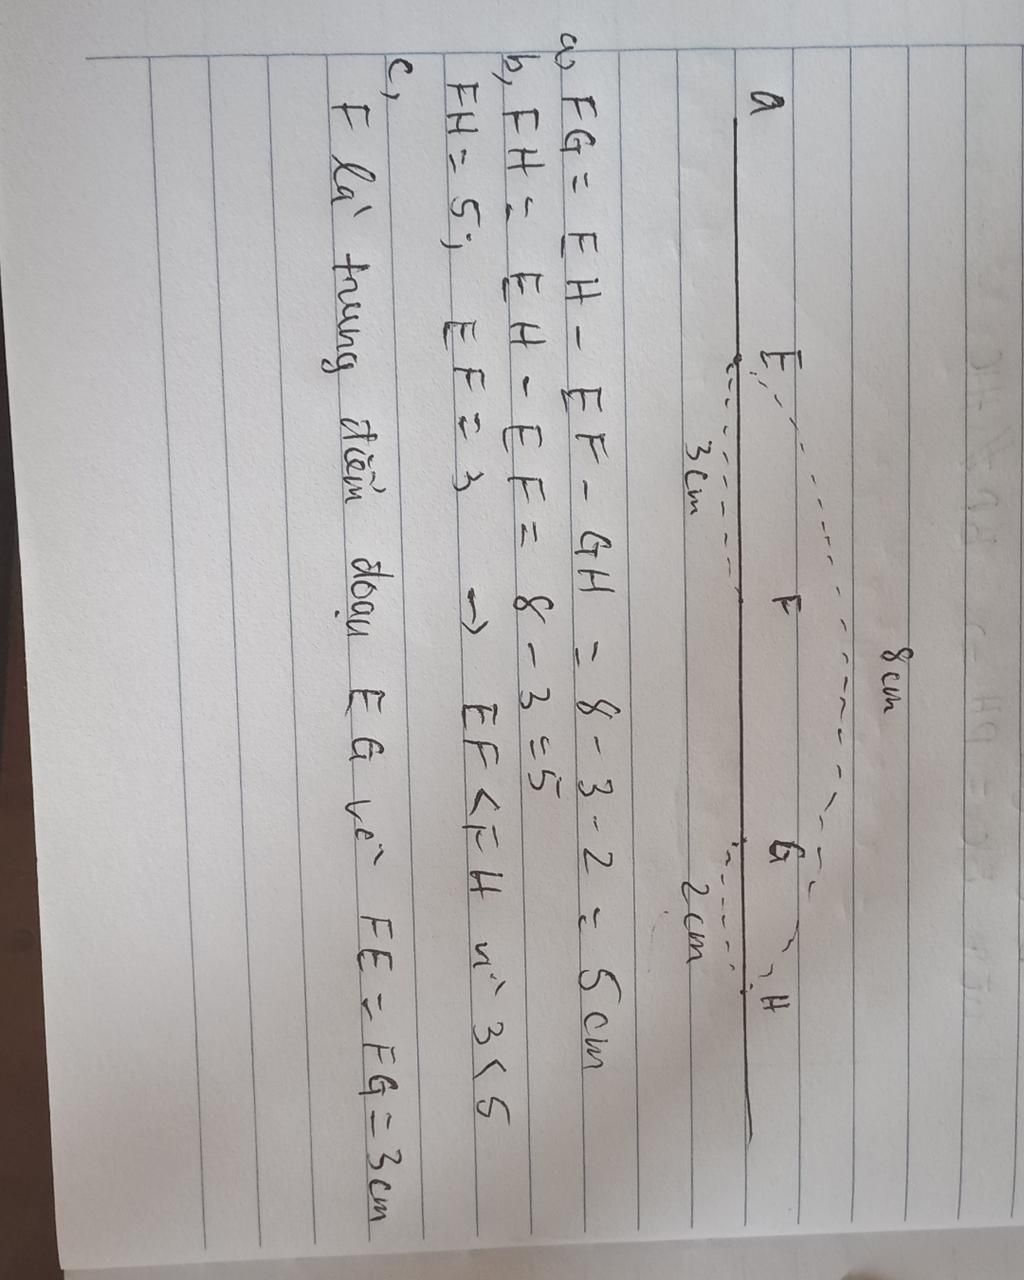 8cm
a E F G H
3cm 2cm
a, FG = EH - EF - GH = 8 - 3 - 2 = 5cm
b, FH = EH - EF = 8 - 3 = 5
FH = 5; EF = 3 → EF < FH vì 3 < 5
c,
F là trung điểm đoạn EG vì FE = FG = 3cm